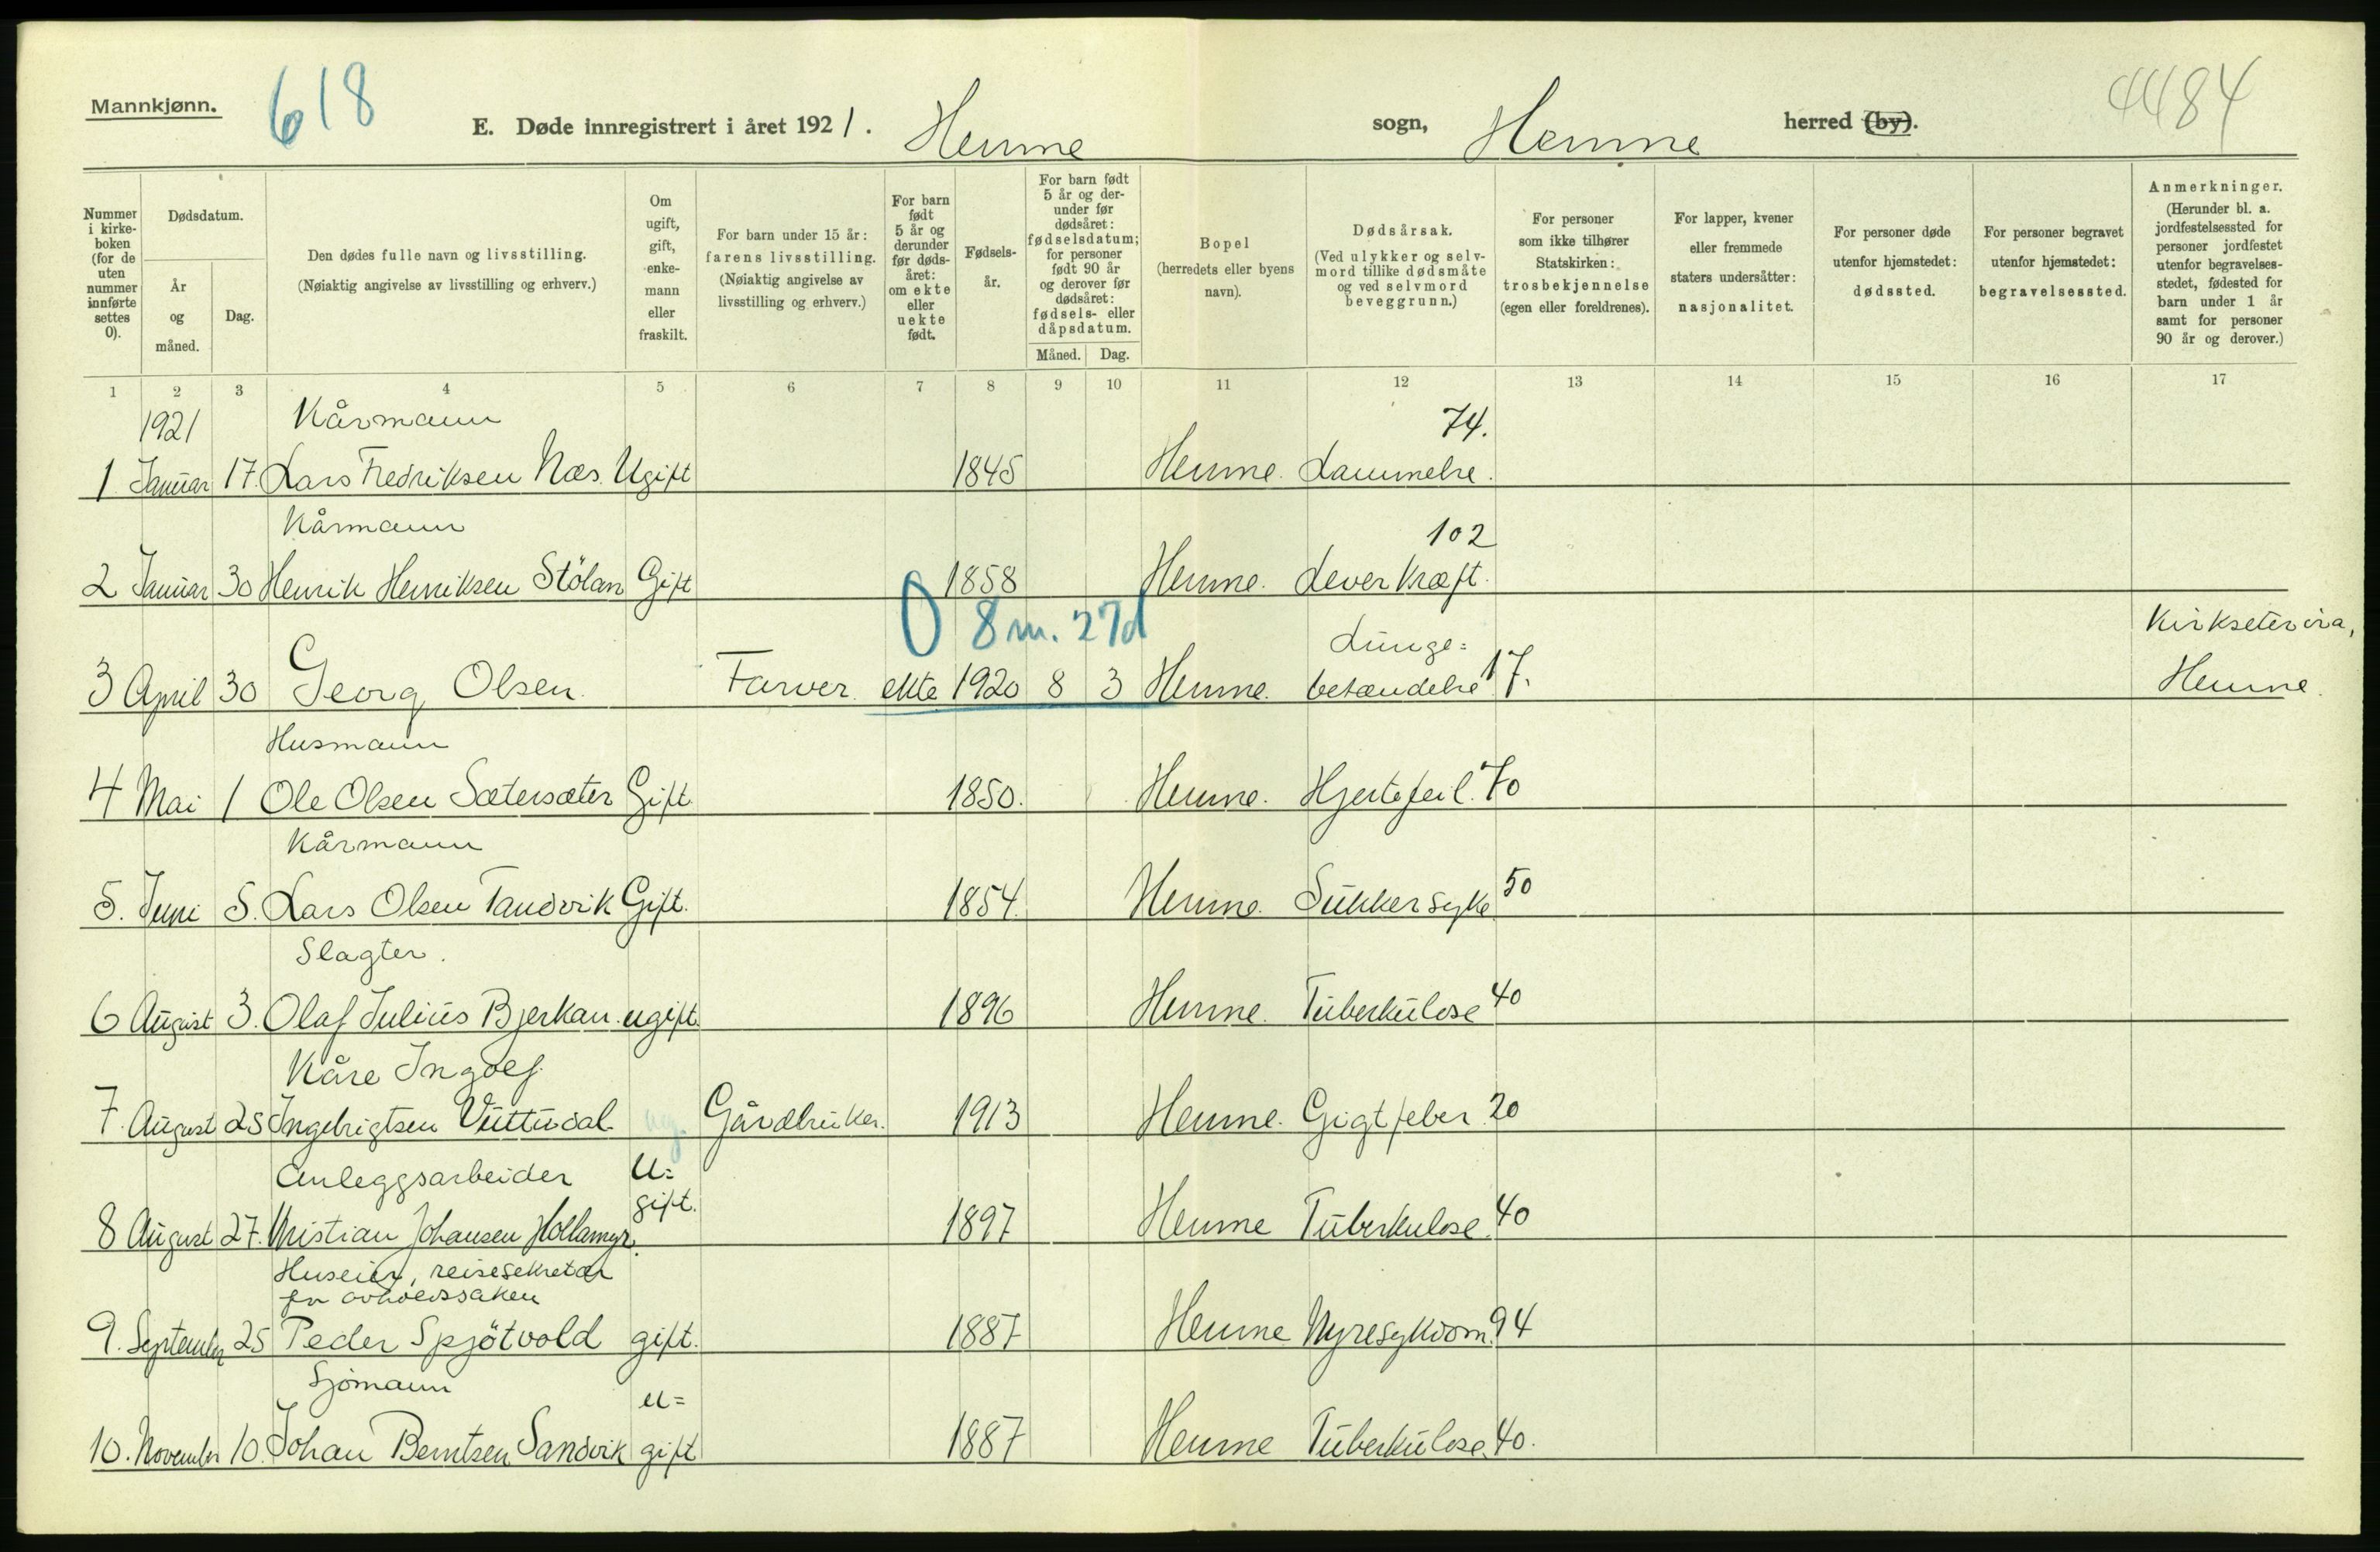 Mannkjønn.
618
E. Døde innregistrert i året 1921. Hemne sogn, Hemne herred (by).
4484
Nummer i kirkeboken (for de uten nummer innførte settes 0).
Dødsdatum.
År og måned.
Dag.
Den dødes fulle navn og livsstilling.
(Nøiaktig angivelse av livsstilling og erhverv.)
Om ugift, gift, enkemann eller fraskilt.
For barn under 15 år: farens livsstilling.
(Nøiaktig angivelse av livsstilling og erhverv.)
For barn født 5 år og derunder før dødsåret: om ekte eller uekte født.
Fødselsår.
For barn født 5 år og derunder før dødsåret: fødselsdatum; for personer født 90 år og derover før dødsåret: fødsels- eller dåpsdatum.
Måned. Dag.
Bopel (herredets eller byens navn).
Dødsårsak.
(Ved ulykker og selvmord tillike dødsmåte og ved selvmord beveggrunn.)
For personer som ikke tilhører Statskirken: trosbekjennelse (egen eller foreldrenes).
For lapper, kvener eller fremmede staters undersåtter: nasjonalitet.
For personer døde utenfor hjemstedet: dødssted.
For personer begravet utenfor hjemstedet: begravelsessted.
Anmerkninger.
(Herunder bl. a. jordfestelsessted for personer jordfestet utenfor begravelsesstedet, fødested for barn under 1 år samt for personer 90 år og derover.)
1 2 3 4 5 6 7 8 9 10 11 12 13 14 15 16 17
1921 Kårmann 74.
1 Januar 17. Lars Fredriksen Næs. Ugift 1845 Hemne. Lammelse.
Kårmann 102
2 Januar 30 Henrik Henriksen Stölan Gift 1858 Hemne. Leverkræft.
0 8 m. 27d Lunge= Kirkseterøra,
3 April 30 Georg Olsen. Farver. ekte 1920 8 3 Hemne. betændelse 17. Hemne.
Husmann
4 Mai 1 Ole Olsen Sætersæter Gift 1850. Hemne. Hjertefeil. 70
Kårmann
5. Juni 5. Lars Olsen Tandvik Gift. 1854. Hemne. Sukkersyke 50
Slagter.
6 August 3. Olaf Julius Bjerkan. ugift. 1896 Hemne. Tuberkulose 40
Kåre Ingolf
7. August 25 Ingebrigtsen Vuttudal ug. Gårdbruker. 1913 Hemne. Gigtfeber 20
Anleggsarbeider U=
gift.
8 August 27. Kristian Johansen Hollamyr. 1897 Hemne Tuberkulose. 40
Huseier, reisesekretær
for avholdssaken
9. September 25 Peder Spjötvold gift. 1887 Hemne Nyresykdom. 94
Sjömann u=
10. November 10. Johan Berntsen Sandvik gift 1887 Hemne Tuberkulose. 40.